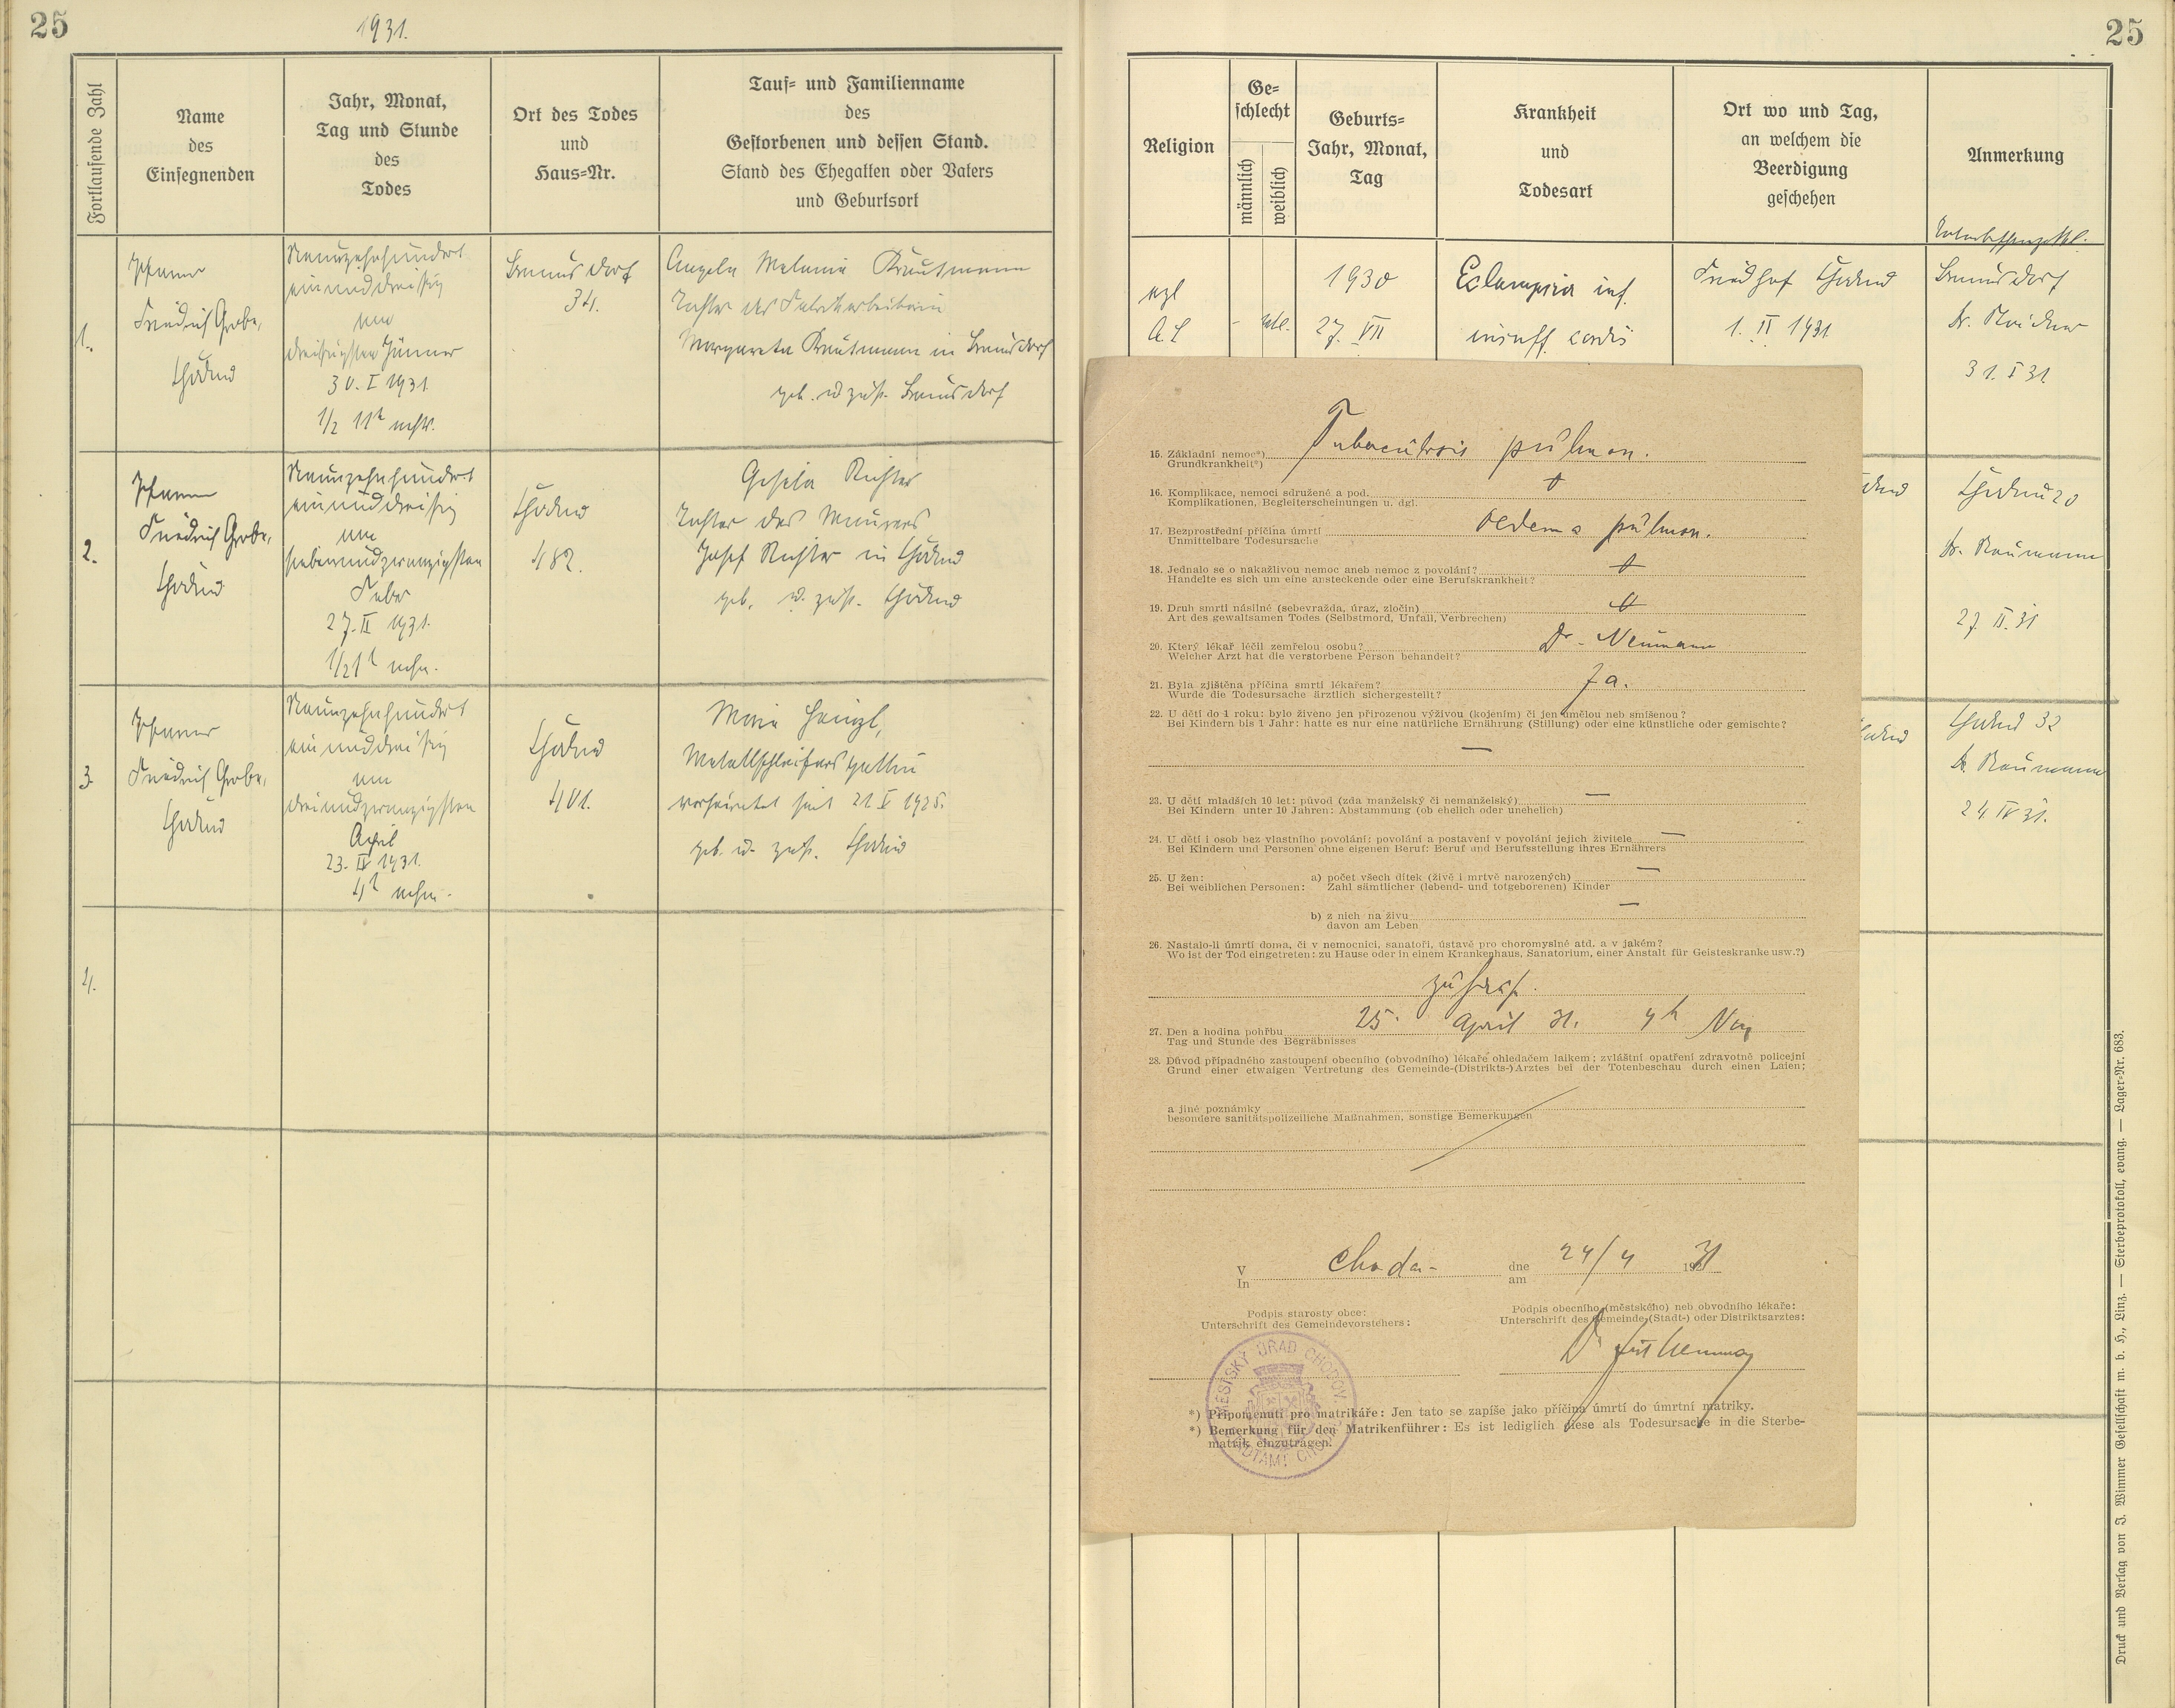 25
1931.
25
Fortlaufende Zahl
Name
des
Einsegnenden
Jahr, Monat,
Tag und Stunde
des
Todes
Ort des Todes
und
Haus-Nr.
Tauf- und Familienname
des
Gestorbenen und dessen Stand.
Stand des Ehegatten oder Vaters
und Geburtsort
Religion
Ge-
schlecht
männlich
weiblich
Geburts-
Jahr, Monat,
Tag
Krankheit
und
Todesart
Ort wo und Tag,
an welchem die
Beerdigung
geschehen
Anmerkung
1.
Pfarrer
Friedrich Grobe,
Chodau
Neunzehnhundert
einunddreißig
am
dreißigsten Jänner
30. I 1931
1/2 11h
34.
Angela Melanie
Tochter der Fabrikarbeiterin
Margareta
evgl
A. C.
- wbl.
1930
27. VII
Eclampsia inf.
insuff. cordis
Friedhof Chodau
1. II 1931
Dr.
31. I 31
2.
Pfarrer
Friedrich Grobe,
Chodau
Neunzehnhundert
einunddreißig
am
siebenundzwanzigsten
Feber
27. II 1931.
1/2 1h nchm.
Chodau
482.
Gisela Richter
Tochter des Maurers
Josef Richter in Chodau
geb. u. zust. Chodau
Chodau 20
Dr. Neumann
27. II. 31
3.
Pfarrer
Friedrich Grobe,
Chodau
Neunzehnhundert
einunddreißig
am
dreiundzwanzigsten
April
23. IV 1931.
4h nchm.
Chodau
401.
Metallschleifers Gattin
verheiratet seit 21. V 1925.
geb. u. zust. Chodau
Chodau 32
Dr. Neumann
24. IV 31.
4.
15. Základní nemoc*) Tuberculosis pulmon.
Grundkrankheit*)
16. Komplikace, nemoci sdružené a pod.
Komplikationen, Begleiterscheinungen u. dgl.
17. Bezprostřední příčina úmrtí Oedema pulmon.
Unmittelbare Todesursache
18. Jednalo se o nakažlivou nemoc aneb nemoc z povolání?
Handelte es sich um eine ansteckende oder eine Berufskrankheit?
19. Druh smrti násilné (sebevražda, úraz, zločin)
Art des gewaltsamen Todes (Selbstmord, Unfall, Verbrechen)
20. Který lékař léčil zemřelou osobu? Dr. Neumann
Welcher Arzt hat die verstorbene Person behandelt?
21. Byla zjištěna příčina smrti lékařem? Ja.
Wurde die Todesursache ärztlich sichergestellt?
22. U dětí do 1 roku: bylo živeno jen přirozenou výživou (kojením) či jen umělou neb smíšenou?
Bei Kindern bis 1 Jahr: hatte es nur eine natürliche Ernährung (Stillung) oder eine künstliche oder gemischte?
—
23. U dětí mladších 10 let: původ (zda manželský či nemanželský) —
Bei Kindern unter 10 Jahren: Abstammung (ob ehelich oder unehelich)
24. U dětí i osob bez vlastního povolání: povolání a postavení v povolání jejich živitele —
Bei Kindern und Personen ohne eigenen Beruf: Beruf und Berufsstellung ihres Ernährers
25. U žen: a) počet všech dítek (živě i mrtvě narozených) —
Bei weiblichen Personen: Zahl sämtlicher (lebend- und totgeborenen) Kinder
b) z nich na živu —
davon am Leben
26. Nastalo-li úmrtí doma, či v nemocnici, sanatoři, ústavě pro choromyslné atd. a v jakém?
Wo ist der Tod eingetreten: zu Hause oder in einem Krankenhaus, Sanatorium, einer Anstalt für Geisteskranke usw.?)
zu Haus.
27. Den a hodina pohřbu 25. April 31. 4h
Tag und Stunde des Begräbnisses
28. Důvod případného zastoupení obecního (obvodního) lékaře ohledačem laikem; zvláštní opatření zdravotně policejní
Grund einer etwaigen Vertretung des Gemeinde-(Distrikts-)Arztes bei der Totenbeschau durch einen Laien;
a jiné poznámky
besondere sanitätspolizeiliche Maßnahmen, sonstige Bemerkungen
V Chodau dne 24/4 1931
In am
Podpis starosty obce:
Unterschrift des Gemeindevorstehers:
Podpis obecního (městského) neb obvodního lékaře:
Unterschrift des Gemeinde-(Stadt-) oder Distriktsarztes:
MĚSTSKÝ ÚŘAD CHODOV
*) Připomenutí pro matrikáře: Jen tato se zapíše jako příčina úmrtí do úmrtní matriky.
*) Bemerkung für den Matrikenführer: Es ist lediglich diese als Todesursache in die Sterbe-
matrik einzutragen.
Druck und Verlag von J. Wimmer Gesellschaft m. b. H., Linz. — Sterbeprotokoll, evang. — Lager-Nr. 683.